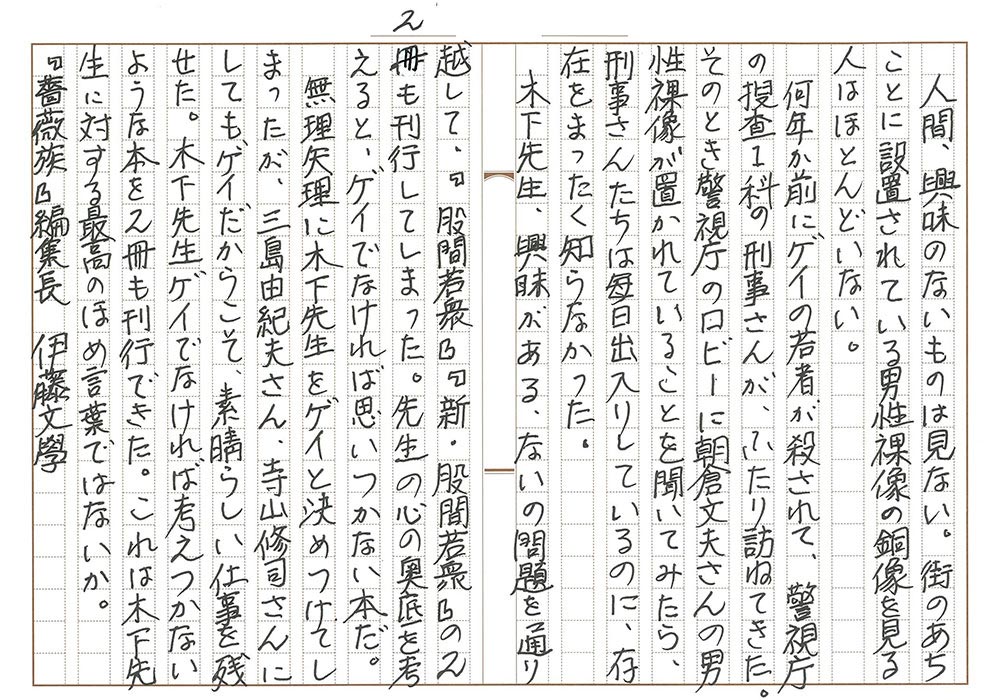 2
人間、興味のないものは見ない。街のあち
ことに設置されている男性裸像の銅像を見る
人はほとんどいない。
何年か前にゲイの若者が殺されて、警視庁
の捜査1科の刑事さんが、ふたり訪ねてきた。
そのとき警視庁のロビーに朝倉文夫さんの男
性裸像が置かれていることを聞いてみたら、
刑事さんたちは毎日出入りしているのに、存
在をまったく知らなかった。
木下先生、興味がある、ないの問題を通り
越して、『股間若衆』『新・股間若衆』の2
冊も刊行してしまった。先生の心の奥底を考
えると、ゲイでなければ思いつかない本だ。
無理矢理に木下先生をゲイと決めつけてし
まったが、三島由紀夫さん、寺山修司さんに
してもゲイだからこそ、素晴らしい仕事を残
せた。木下先生ゲイでなければ考えつかない
ような本を2冊も刊行できた。これは木下先
生に対する最高のほめ言葉ではないか。
『薔薇族』編集長 伊藤文學